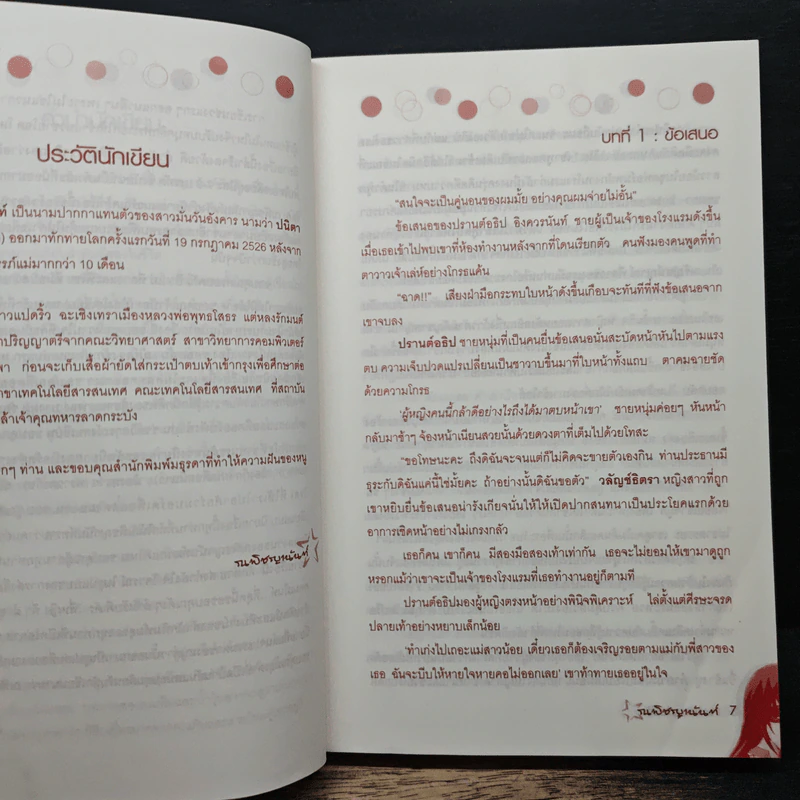 ประวัตินักเขียน
ท์ เป็นนามปากกาแทนตัวของสาวมั่นวันอังคาร นามว่า ปนิตา
) ออกมาทักทายโลกครั้งแรกวันที่ 19 กรกฎาคม 2526 หลังจาก
รภ์แม่มากกว่า 10 เดือน
าวแปดริ้ว ฉะเชิงเทราเมืองหลวงพ่อพุทธโสธร แต่หลงรักมนต์
าปริญญาตรีจากคณะวิทยาศาสตร์ สาขาวิทยาการคอมพิวเตอร์
พา ก่อนจะเก็บเสื้อผ้ายัดใส่กระเป๋าตบเท้าเข้ากรุงเพื่อศึกษาต่อ
าขาเทคโนโลยีสารสนเทศ คณะเทคโนโลยีสารสนเทศ ที่สถาบัน
ล้าเจ้าคุณทหารลาดกระบัง
ากๆ ท่าน และขอบคุณสำนักพิมพ์มธุรดาที่ทำให้ความฝันของหนู
บทที่ 1 : ข้อเสนอ
"สนใจจะเป็นคู่นอนของผมมั้ย อย่างคุณผมจ่ายไม่อั้น"
ข้อเสนอของปรานต์อธิป อิงควรนันท์ ชายผู้เป็นเจ้าของโรงแรมดังขึ้น
เมื่อเธอเข้าไปพบเขาที่ห้องทำงานหลังจากที่โดนเรียกตัว คนฟังมองคนพูดที่ทำ
ตาวาวเจ้าเล่ห์อย่างโกรธแค้น
"ฉาด!!" เสียงฝ่ามือกระทบใบหน้าดังขึ้นเกือบจะทันทีที่ฟังข้อเสนอจาก
เขาจบลง
ปรานต์อธิป ชายหนุ่มที่เป็นคนยื่นข้อเสนอนั่นสะบัดหน้าหันไปตามแรง
ตบ ความเจ็บปวดแปรเปลี่ยนเป็นชาวาบขึ้นมาที่ใบหน้าทั้งแถบ ตาคมฉายชัด
ด้วยความโกรธ
'ผู้หญิงคนนี้กล้าดีอย่างไรถึงได้มาตบหน้าเขา' ชายหนุ่มค่อยๆ หันหน้า
กลับมาช้าๆ จ้องหน้าเนียนสวยนั้นด้วยดวงตาที่เต็มไปด้วยโทสะ
"ขอโทษนะคะ ถึงดิฉันจะจนแต่ก็ไม่คิดจะขายตัวเองกิน ท่านประธานมี
ธุระกับดิฉันแค่นี้ใช่มั้ยคะ ถ้าอย่างนั้นดิฉันขอตัว" วลัญช์ธิตรา หญิงสาวที่ถูก
เขาหยิบยื่นข้อเสนอน่ารังเกียจนั่นให้ให้เปิดปากสนทนาเป็นประโยคแรกด้วย
อาการเชิดหน้าอย่างไม่เกรงกลัว
เธอก็คน เขาก็คน มีสองมือสองเท้าเท่ากัน เธอจะไม่ยอมให้เขามาดูถูก
หรอกแม้ว่าเขาจะเป็นเจ้าของโรงแรมที่เธอทำงานอยู่ก็ตามที
ปรานต์อธิปมองผู้หญิงตรงหน้าอย่างพินิจพิเคราะห์ ไล่ตั้งแต่ศีรษะจรด
ปลายเท้าอย่างหยาบเล็กน้อย
'ทำเก่งไปเถอะแม่สาวน้อย เดี๋ยวเธอก็ต้องเจริญรอยตามแม่กับพี่สาวของ
เธอ ฉันจะบีบให้หายใจหายคอไม่ออกเลย' เขาท้าทายเธออยู่ในใจ
7